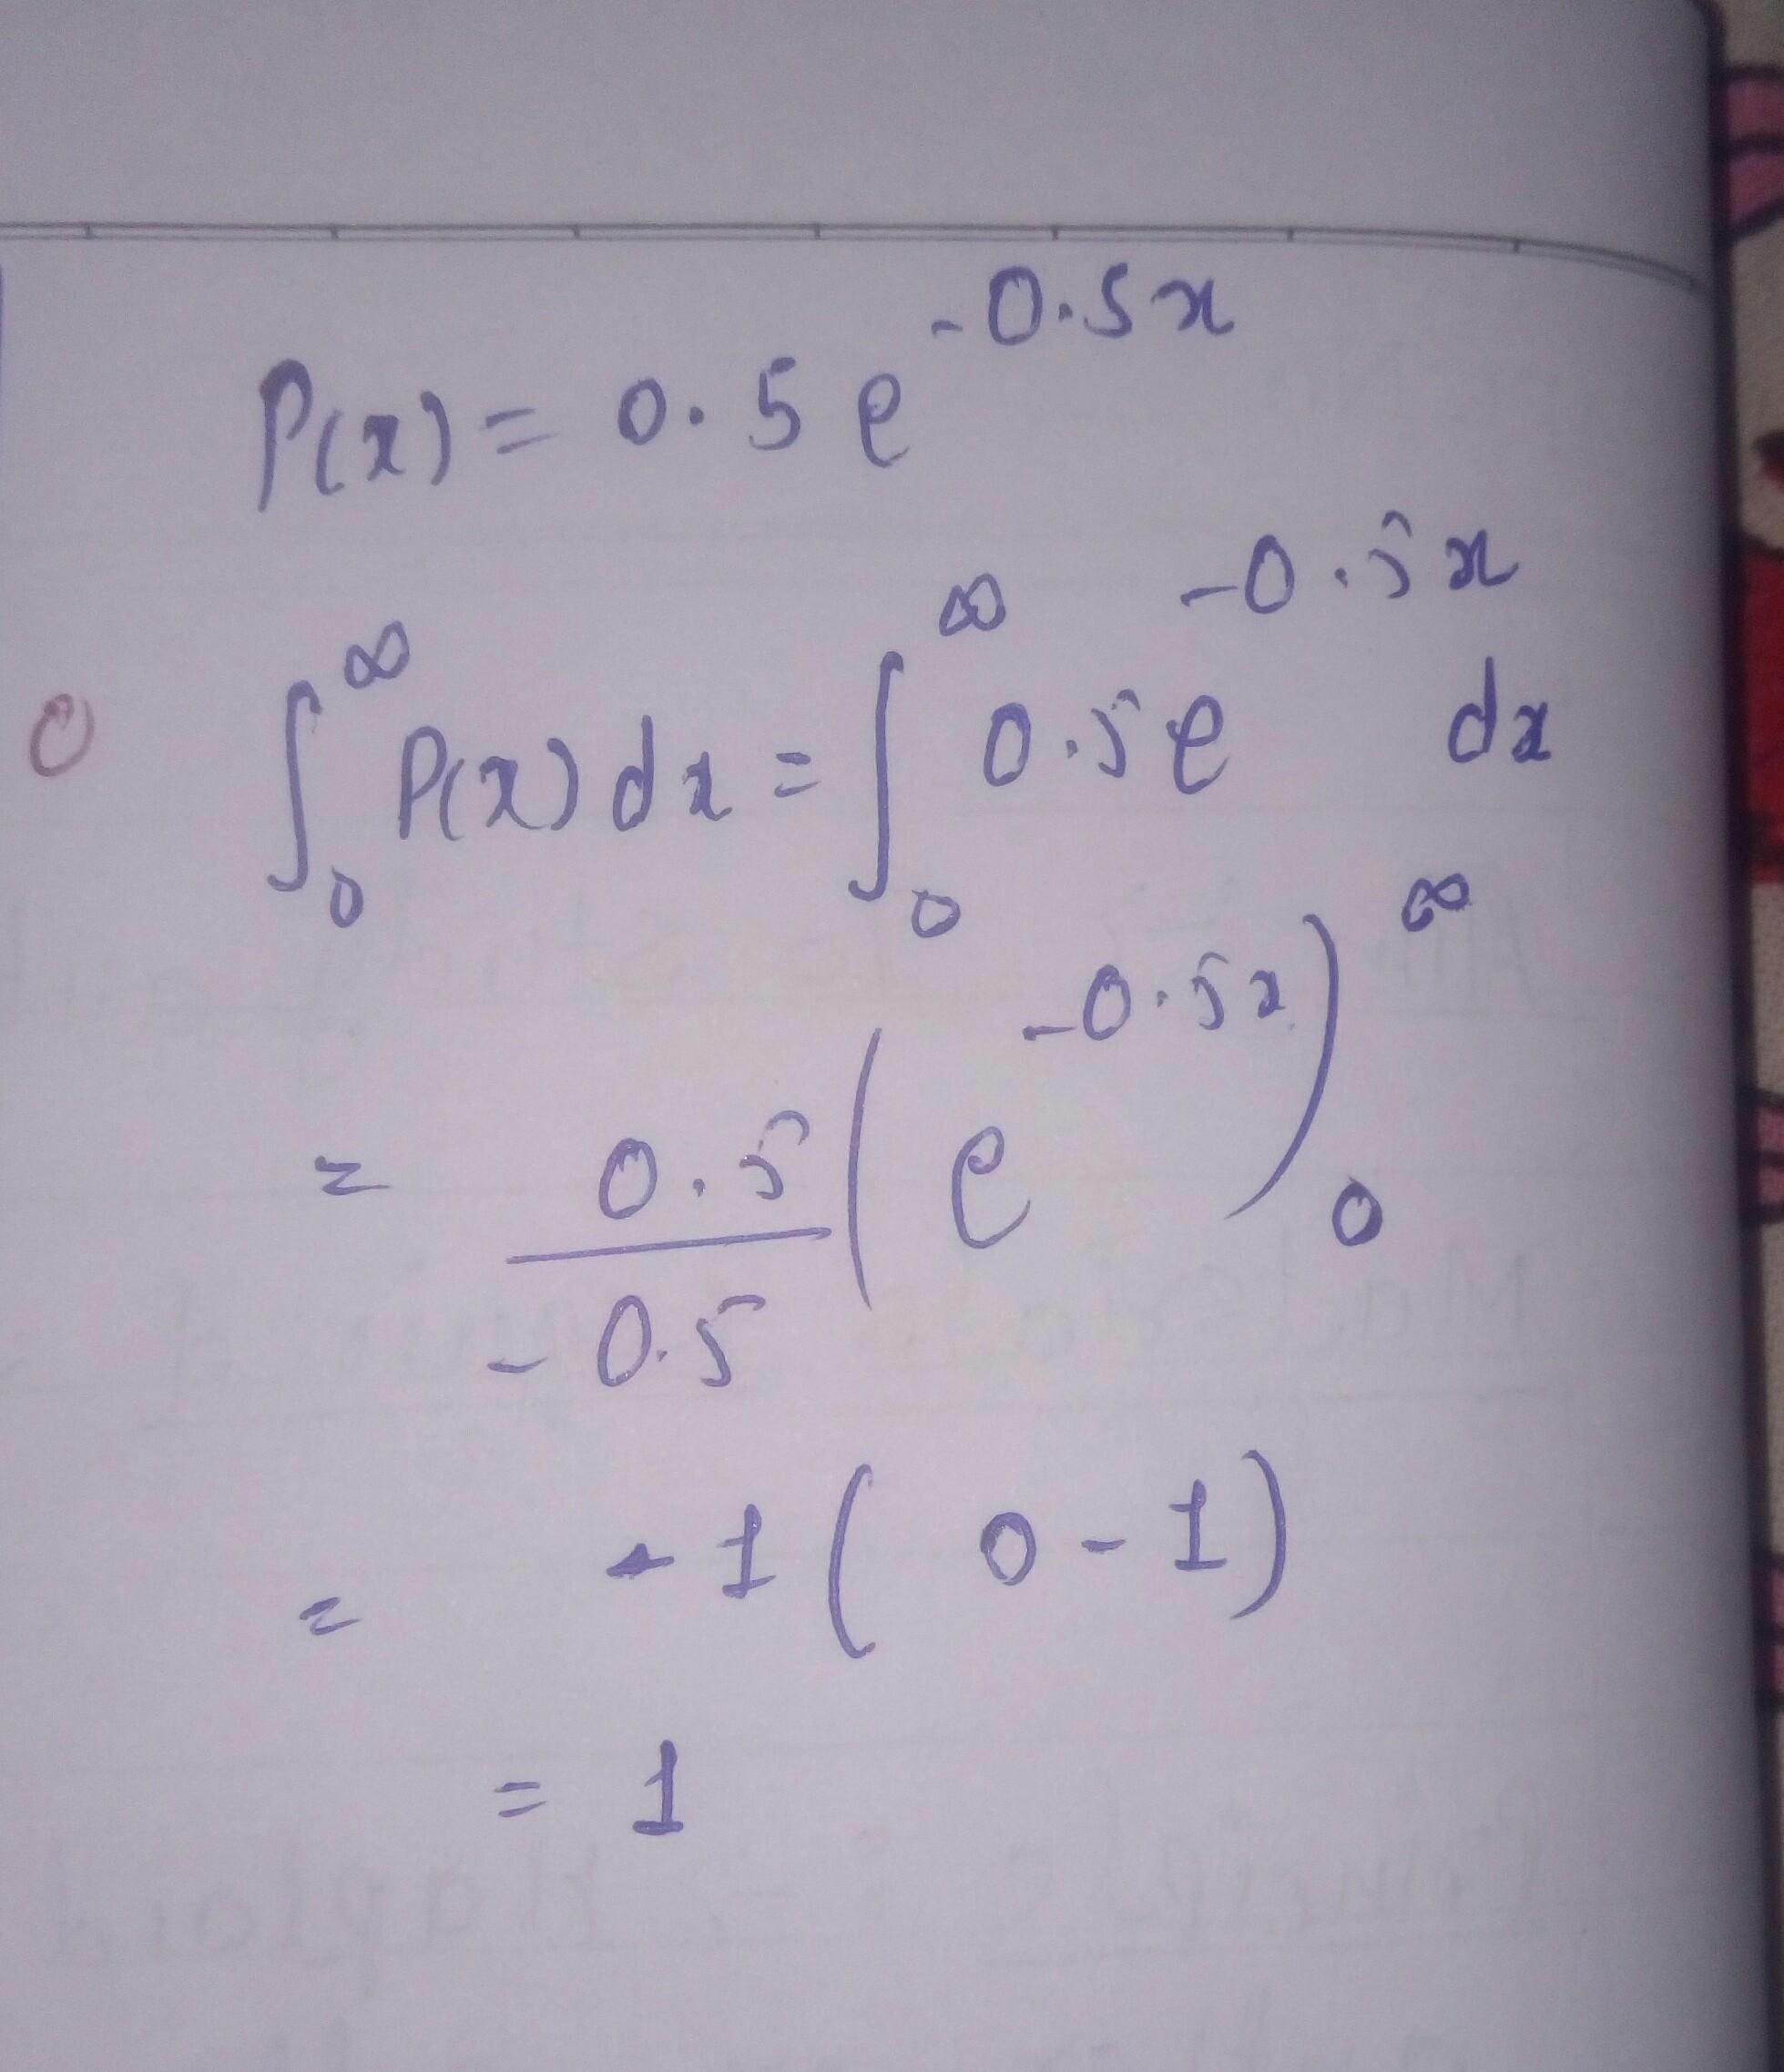 P(x) = 0.5 e^{-0.5x}
0
∫_0^∞ P(x) dx = ∫_0^∞ 0.5 e^{-0.5x} dx
= \frac{0.5}{-0.5} ( e^{-0.5x} )_0^∞
= -1 ( 0 - 1 )
= 1